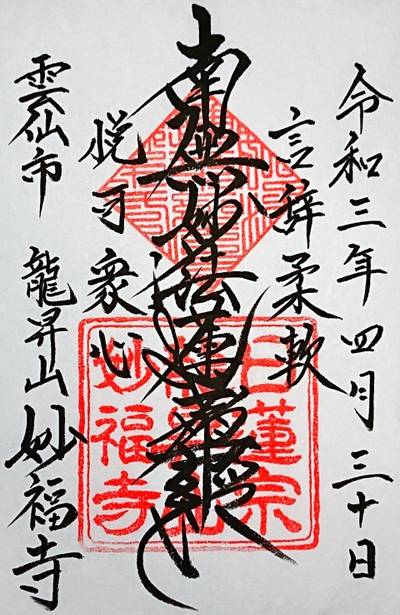 令和三年四月三十日
言辞柔軟
南無妙法蓮華経
悦可衆心
雲仙市 龍昇山妙福寺
日蓮宗
妙福寺